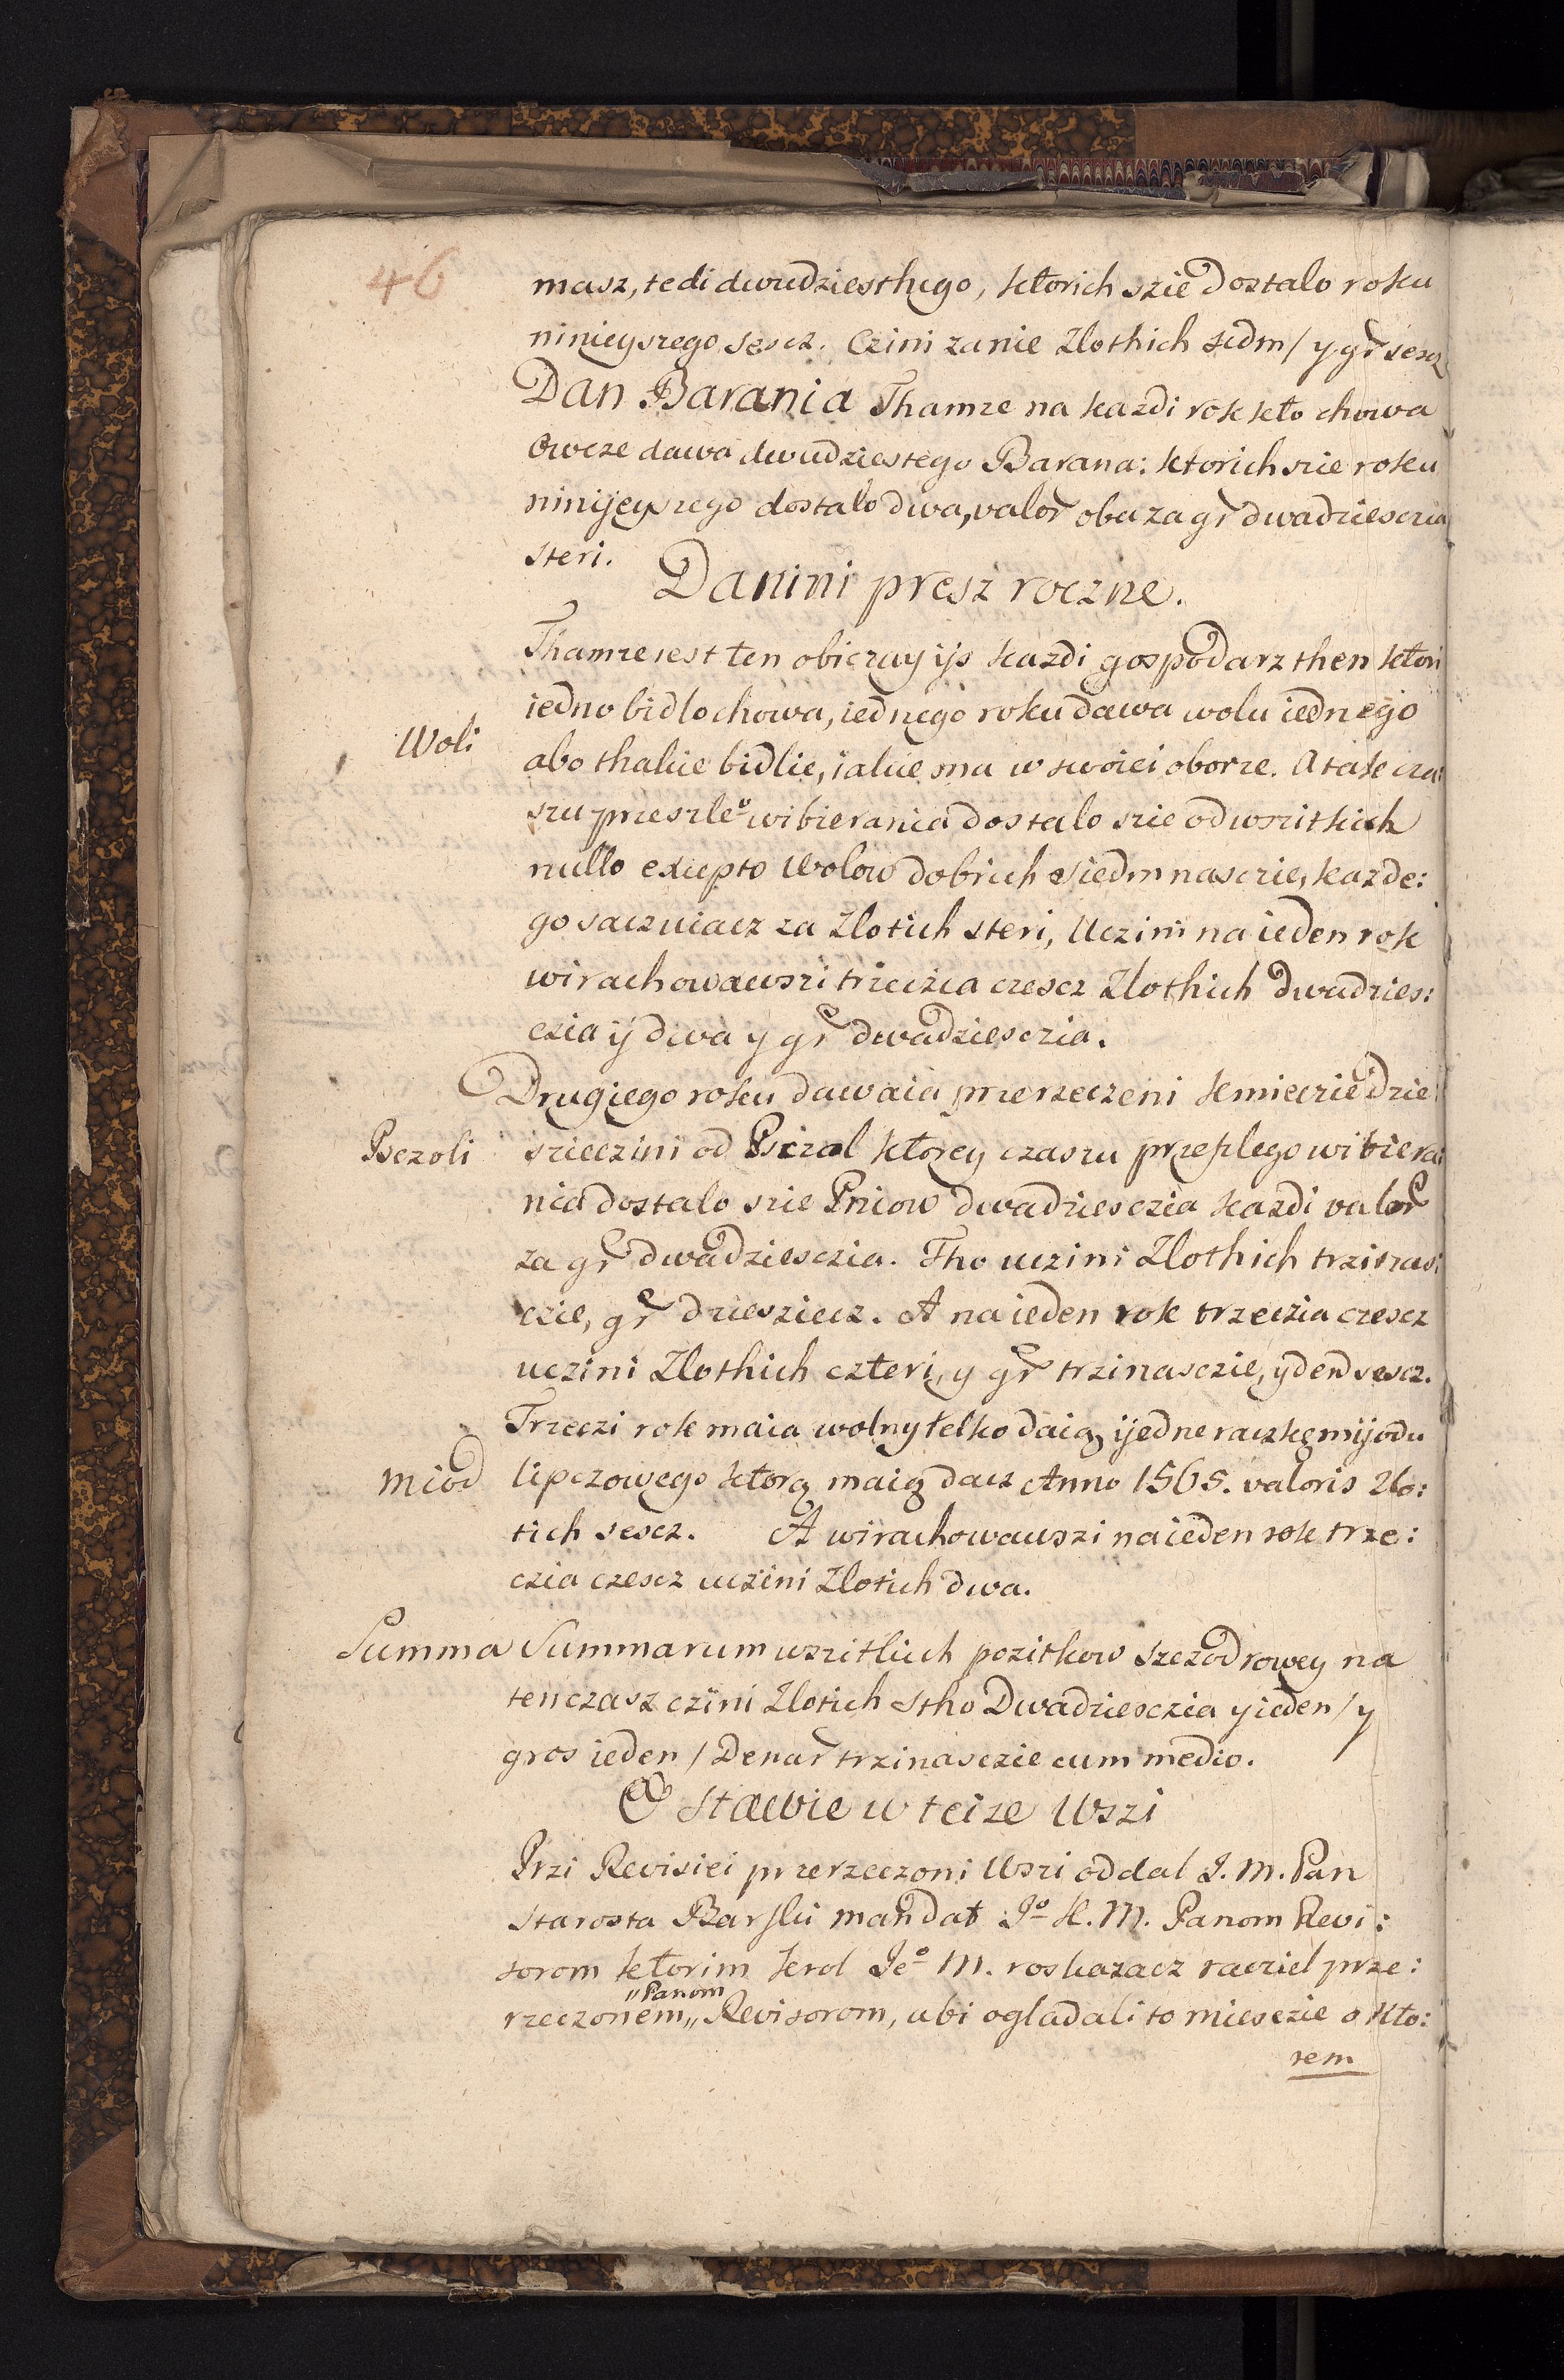 46
masz, tedi dwudziesthego, ktorich szie dostalo roku
ninieyszego sescz. Czini zanie Zlothich sedm / y gr sescz
Dan Barania Thamze na kazdi rok kto chowa
Owcze dawa dwudziestego Barana: ktorich szie roku
ninijeyszego dostalo dwa, valor oba za gr dwadziesczia
steri.
Danini presz roczne.
Thamze iest ten obiczay ijs kazdi gospodarz then ktori
iedno bidlo chowa, iednego roku dawa wolu iednego
Woli
abo thakie bidlie, iakie ma w swoiei oborze. A tak cza:
szu przeszle⁰ wibierania dostalo szie od wszitkich
nullo excepto Wolow dobrich siedmnasczie, kazde:
go saczuiacz za Zlotich steri, Uczini na ieden rok
wirachowawszi trzeczia czescz Zlothich dwadzies:
czia ij dwa y gr dwadziesczia.
Drugiego roku dawaia przerzeczeni kmieczie dzie:
Pczoli
szieczini od Psczol ktorey czaszu przeszlego wibiera:
nia dostalo szie Pniow dwadziesczia kazdi valor
za gr dwadziesczia. Tho uczini Zlothich trzinas:
czie, gr dziesziecz. A na ieden rok trzeczia czescz
uczini Zlothich czteri, y gr trzinasczie, y den sescz.
Trzeczi rok maia wolny telko daią ijedne raczkę mijodu
Miod
lipczowego ktorą maią dacz Anno 1565. valoris Zlo:
tich sescz. A wirachowauszi na ieden rok trze:
czia czescz uczini Zlotich dwa.
Summa Summarum wszitkich pozitkow Szczodrowey na
ten czasz czini Zlotich Stho Dwadziesczia y ieden / y
gros ieden / Denar trzinasczie cum medio.
O Stawie w teize Wszi
Przi Revisiei przerzeczoni Wszi oddal J. M. Pan
Starosta Barski mandat J⁰ K. M. Panom Revi:
sorom ktorim krol Je⁰ M. roskazacz racziel prze:
"Panom
rzeczonem„ Revisorom, abi ogladali to miesczie o kto:
rem